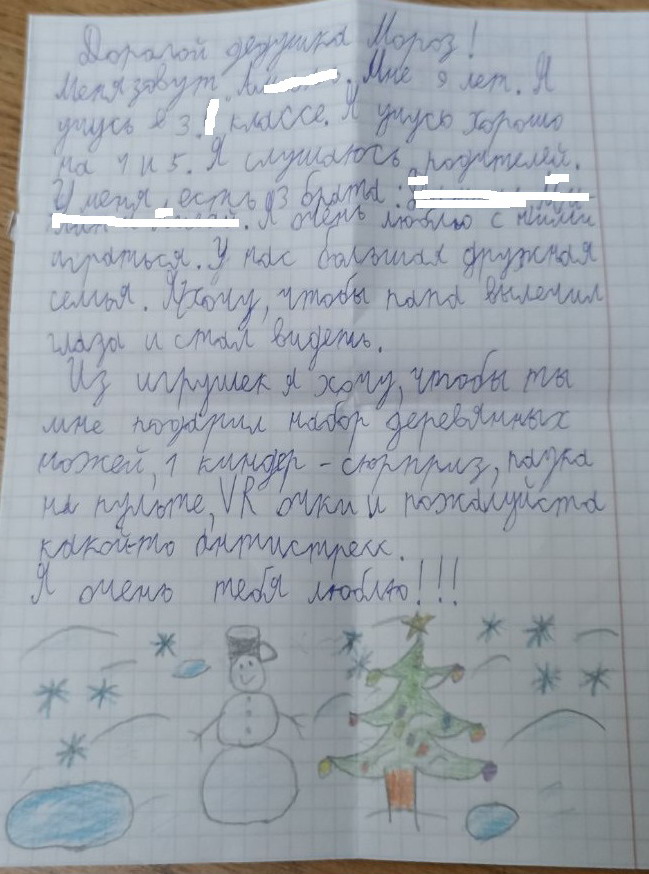 Дорогой дедушка Мороз!
Меня зовут А. Мне 9 лет. Я
учусь в 3 классе. Я учусь хорошо
на 4 и 5. Я слушаюсь родителей.
У меня есть 3 брата:
Я очень люблю с ними
играться. У нас большая дружная
семья. Я хочу, чтобы папа вылечил
глаза и стал видеть.
Из игрушек я хочу, чтобы ты
мне подарил набор деревянных
ножей, 1 киндер-сюрприз, паука
на пульте, VR очки и пожалуйста
какой-то антистресс.
Я очень тебя люблю!!!